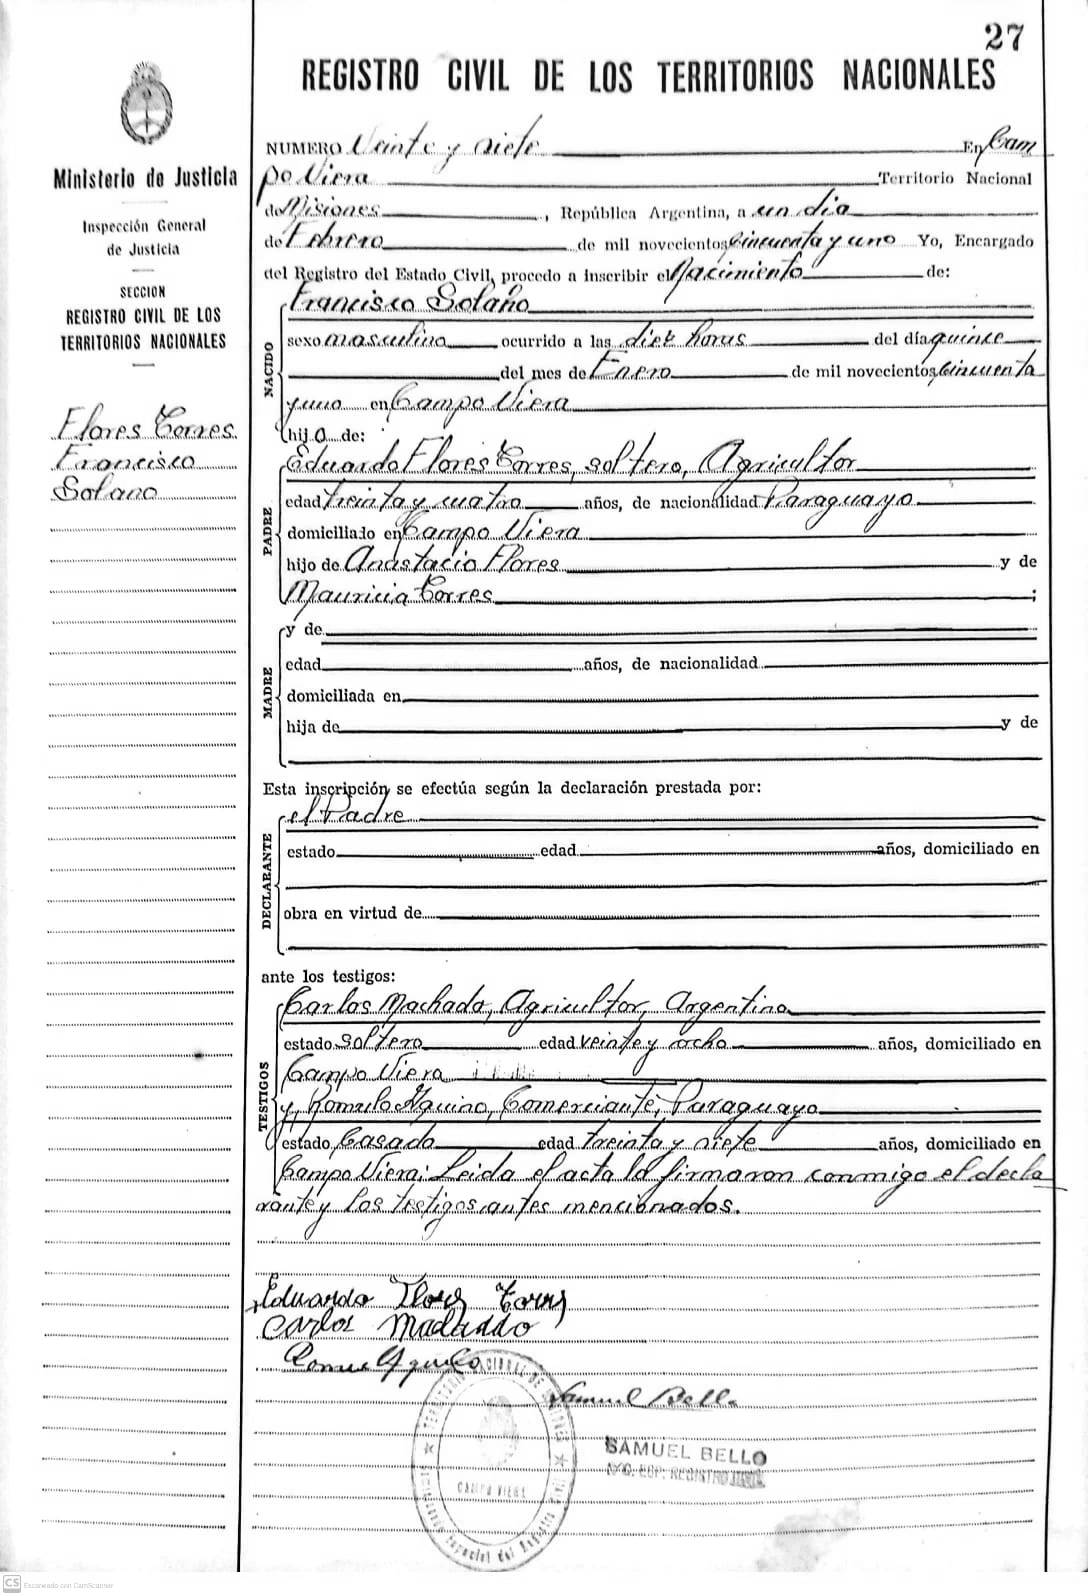 27
REGISTRO CIVIL DE LOS TERRITORIOS NACIONALES
Ministerio de Justicia
Inspección General
de Justicia
SECCION
REGISTRO CIVIL DE LOS
TERRITORIOS NACIONALES
Flores Torres
Francisco
Solano
NUMERO Veinte y siete En Cam
po Viera Territorio Nacional
de Misiones, República Argentina, a un día
de Febrero de mil novecientos cincuenta y uno Yo, Encargado
del Registro del Estado Civil, procedo a inscribir el Nacimiento de:
NACIDO
Francisco Solano
sexo masculino ocurrido a las diez horas del día quince
del mes de Enero de mil novecientos cincuenta
y uno en Campo Viera
hijo de:
PADRE
Eduardo Flores Torres, soltero, Agricultor
edad treinta y cuatro años, de nacionalidad Paraguayo
domiciliado en Campo Viera
hijo de Anastacio Flores y de
Mauricia Torres;
MADRE
y de
edad años, de nacionalidad
domiciliada en
hija de y de
Esta inscripción se efectúa según la declaración prestada por:
DECLARANTE
el Padre
estado edad años, domiciliado en
obra en virtud de
ante los testigos:
TESTIGOS
Carlos Machado, Agricultor, Argentino
estado soltero edad veinte y ocho años, domiciliado en
Campo Viera
y, Romulo Aquino, Comerciante, Paraguayo
estado Casado edad treinta y siete años, domiciliado en
Campo Viera; Leida el acta la firmaron conmigo el decla
rante y los testigos antes mencionados.
Eduardo Flores Torres
Carlos Machado
Samuel Bello
TERRITORIO NACIONAL DE MISIONES
CAMPO VIERA
SAMUEL BELLO
CS Escaneado con CamScanner